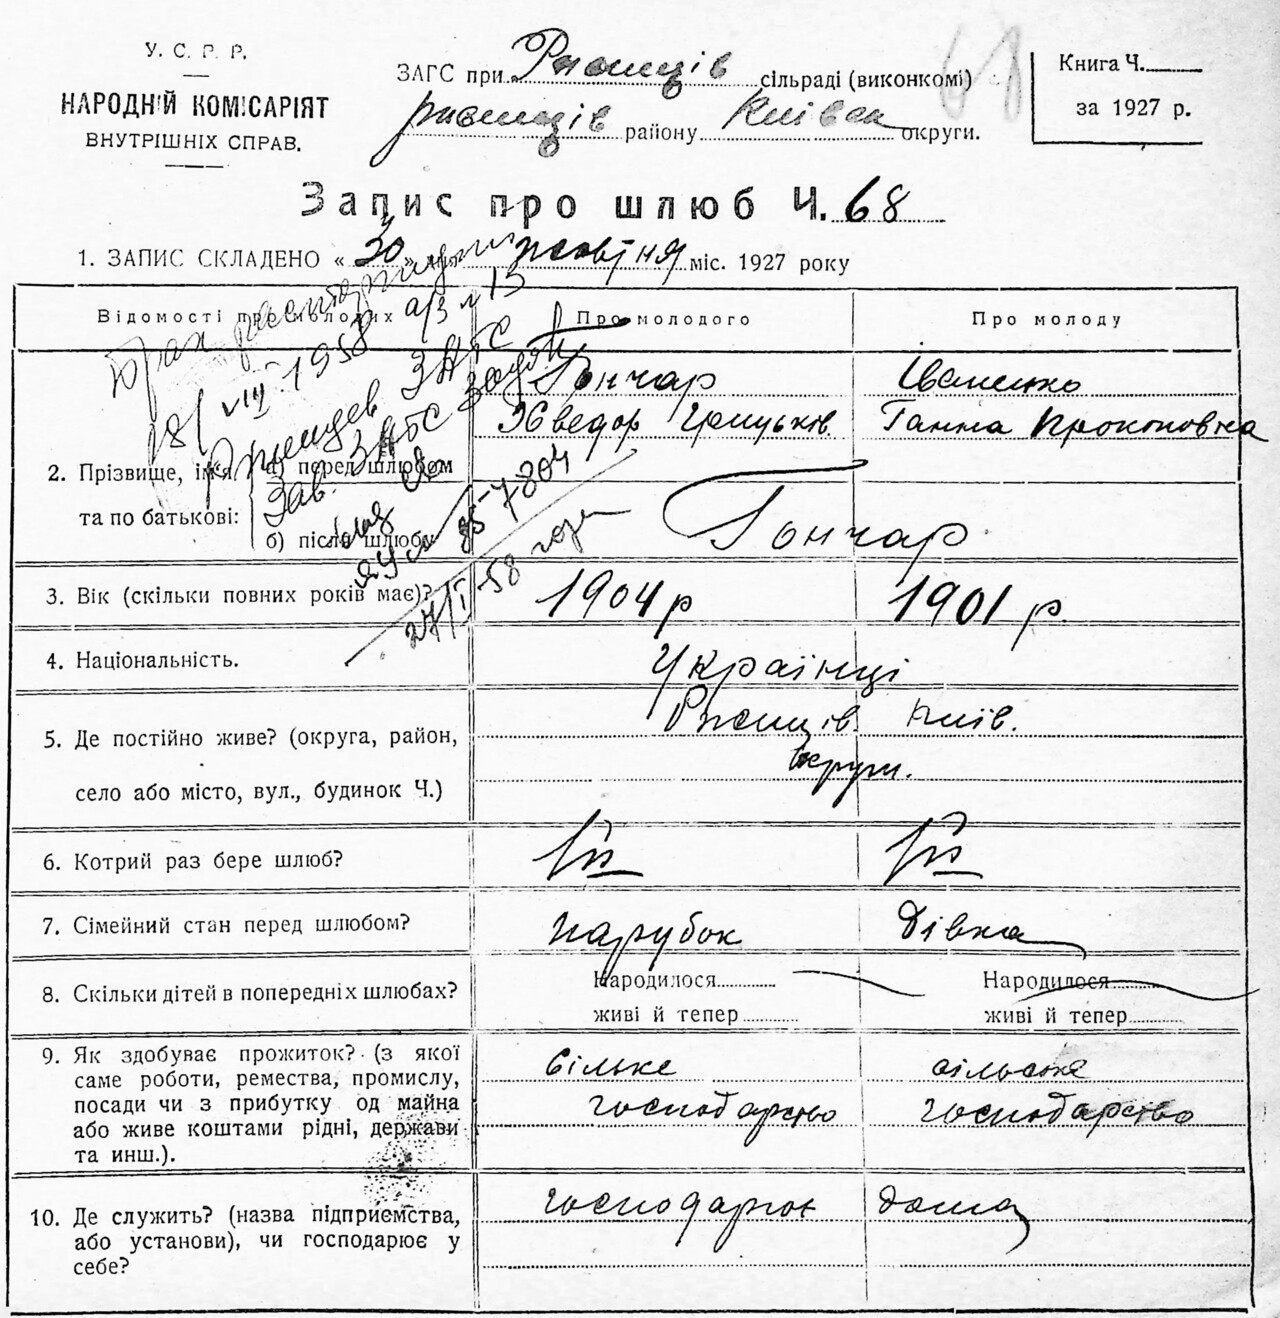 У. С. Р. Р.
НАРОДНІЙ КОМІСАРІЯТ
ВНУТРІШНІХ СПРАВ.
ЗАГС при Ржищів сільраді (виконкомі)
Ржищів району Київск округи.
Книга Ч.
за 1927 р.
Запис про шлюб Ч. 68
1. ЗАПИС СКЛАДЕНО « 30 » жовтня міс. 1927 року
Відомості про молодих
Про молодого
Про молоду
Брак
18/VIII 1958 а/з № 13
Ржищев ЗАГС
Зав. ЗАГС
7804
27/I 58 года
2. Прізвище, ім'я та по батькові:
а) перед шлюбом
Гончар
Хведор Грицьків.
Іваненко
Ганна Прокоповна
б) після шлюбу
Гончар
3. Вік (скільки повних років має)?
1904 р
1901 р.
4. Національність.
Українці
5. Де постійно живе? (округа, район,
село або місто, вул., будинок Ч.)
Ржищів. Київ.
округи.
6. Котрий раз бере шлюб?
7. Сімейний стан перед шлюбом?
парубок
дівка
8. Скільки дітей в попередніх шлюбах?
Народилося
живі й тепер
Народилося
живі й тепер
9. Як здобуває прожиток? (з якої
саме роботи, ремества, промислу,
посади чи з прибутку од майна
або живе коштами рідні, держави
та инш.).
сільке
господарство
сільске
господарство
10. Де служить? (назва підприємства,
або установи), чи господарює у
себе?
дома